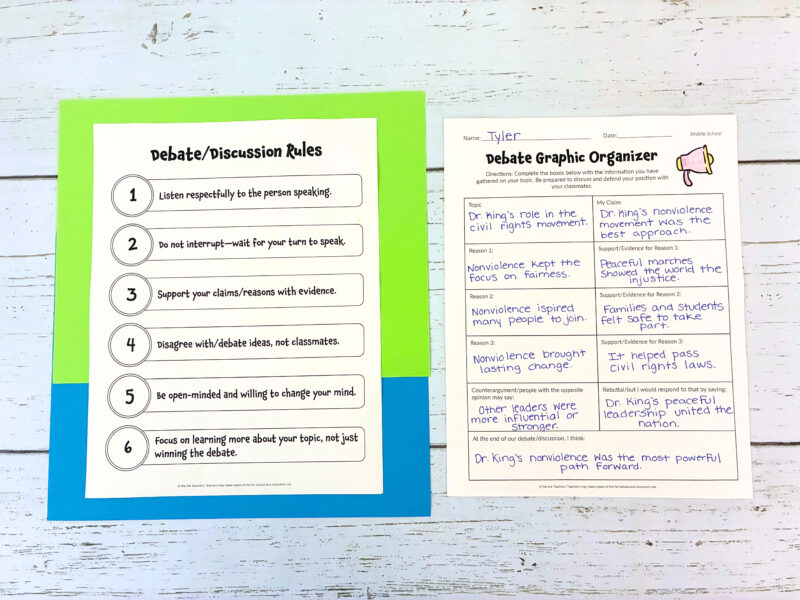 Debate/Discussion Rules
1
Listen respectfully to the person speaking.
2
Do not interrupt—wait for your turn to speak.
3
Support your claims/reasons with evidence.
4
Disagree with/debate ideas, not classmates.
5
Be open-minded and willing to change your mind.
6
Focus on learning more about your topic, not just
winning the debate.
© We Are Teachers. Teachers may make copies of this for school and classroom use.
Name: Tyler Date: Middle School
Debate Graphic Organizer
Directions: Complete the boxes below with the information you have
gathered on your topic. Be prepared to discuss and defend your position with
your classmates.
Topic
Dr. King's role in the
civil rights movement.
My Claim:
Dr. King's nonviolence
movement was the
best approach.
Reason 1:
Nonviolence kept the
focus on fairness.
Support/Evidence for Reason 1:
Peaceful marches
showed the world the
injustice.
Reason 2:
Nonviolence ispired
many people to join.
Support/Evidence for Reason 2:
Families and students
felt safe to take
part.
Reason 3:
Nonviolence brought
lasting change.
Support/Evidence for Reason 3:
It helped pass
civil rights laws.
Counterargument/people with the opposite
opinion may say:
Other leaders were
more influential or
stronger.
Rebuttal/but I would respond to that by saying:
Dr. King's peaceful
leadership united the
nation.
At the end of our debate/discussion, I think:
Dr. King's nonviolence was the most powerful
path forward.
© We Are Teachers. Teachers may make copies of this for school and classroom use.